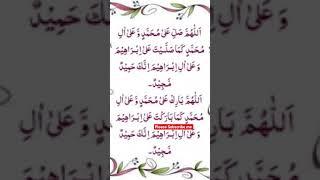 اَللّٰهُمَّ صَلِّ عَلٰی مُحَمَّدٍ وَّ عَلٰۤی اٰلِ
مُحَمَّدٍ کَمَا صَلَّیْتَ عَلٰۤی اِبْرَاهِیْمَ
وَ عَلٰۤی اٰلِ اِبْرَاهِیْمَ اِنَّكَ حَمِیْدٌ
مَّجِیْدٌ۔
اَللّٰهُمَّ بَارِكْ عَلٰی مُحَمَّدٍ وَّ عَلٰۤی اٰلِ
Please Subscribe me
مُحَمَّدٍ کَمَا بَارَکْتَ عَلٰۤی اِبْرَاهِیْمَ
وَ عَلٰۤی اٰلِ اِبْرَاهِیْمَ اِنَّكَ حَمِیْدٌ
مَّجِیْدٌ۔